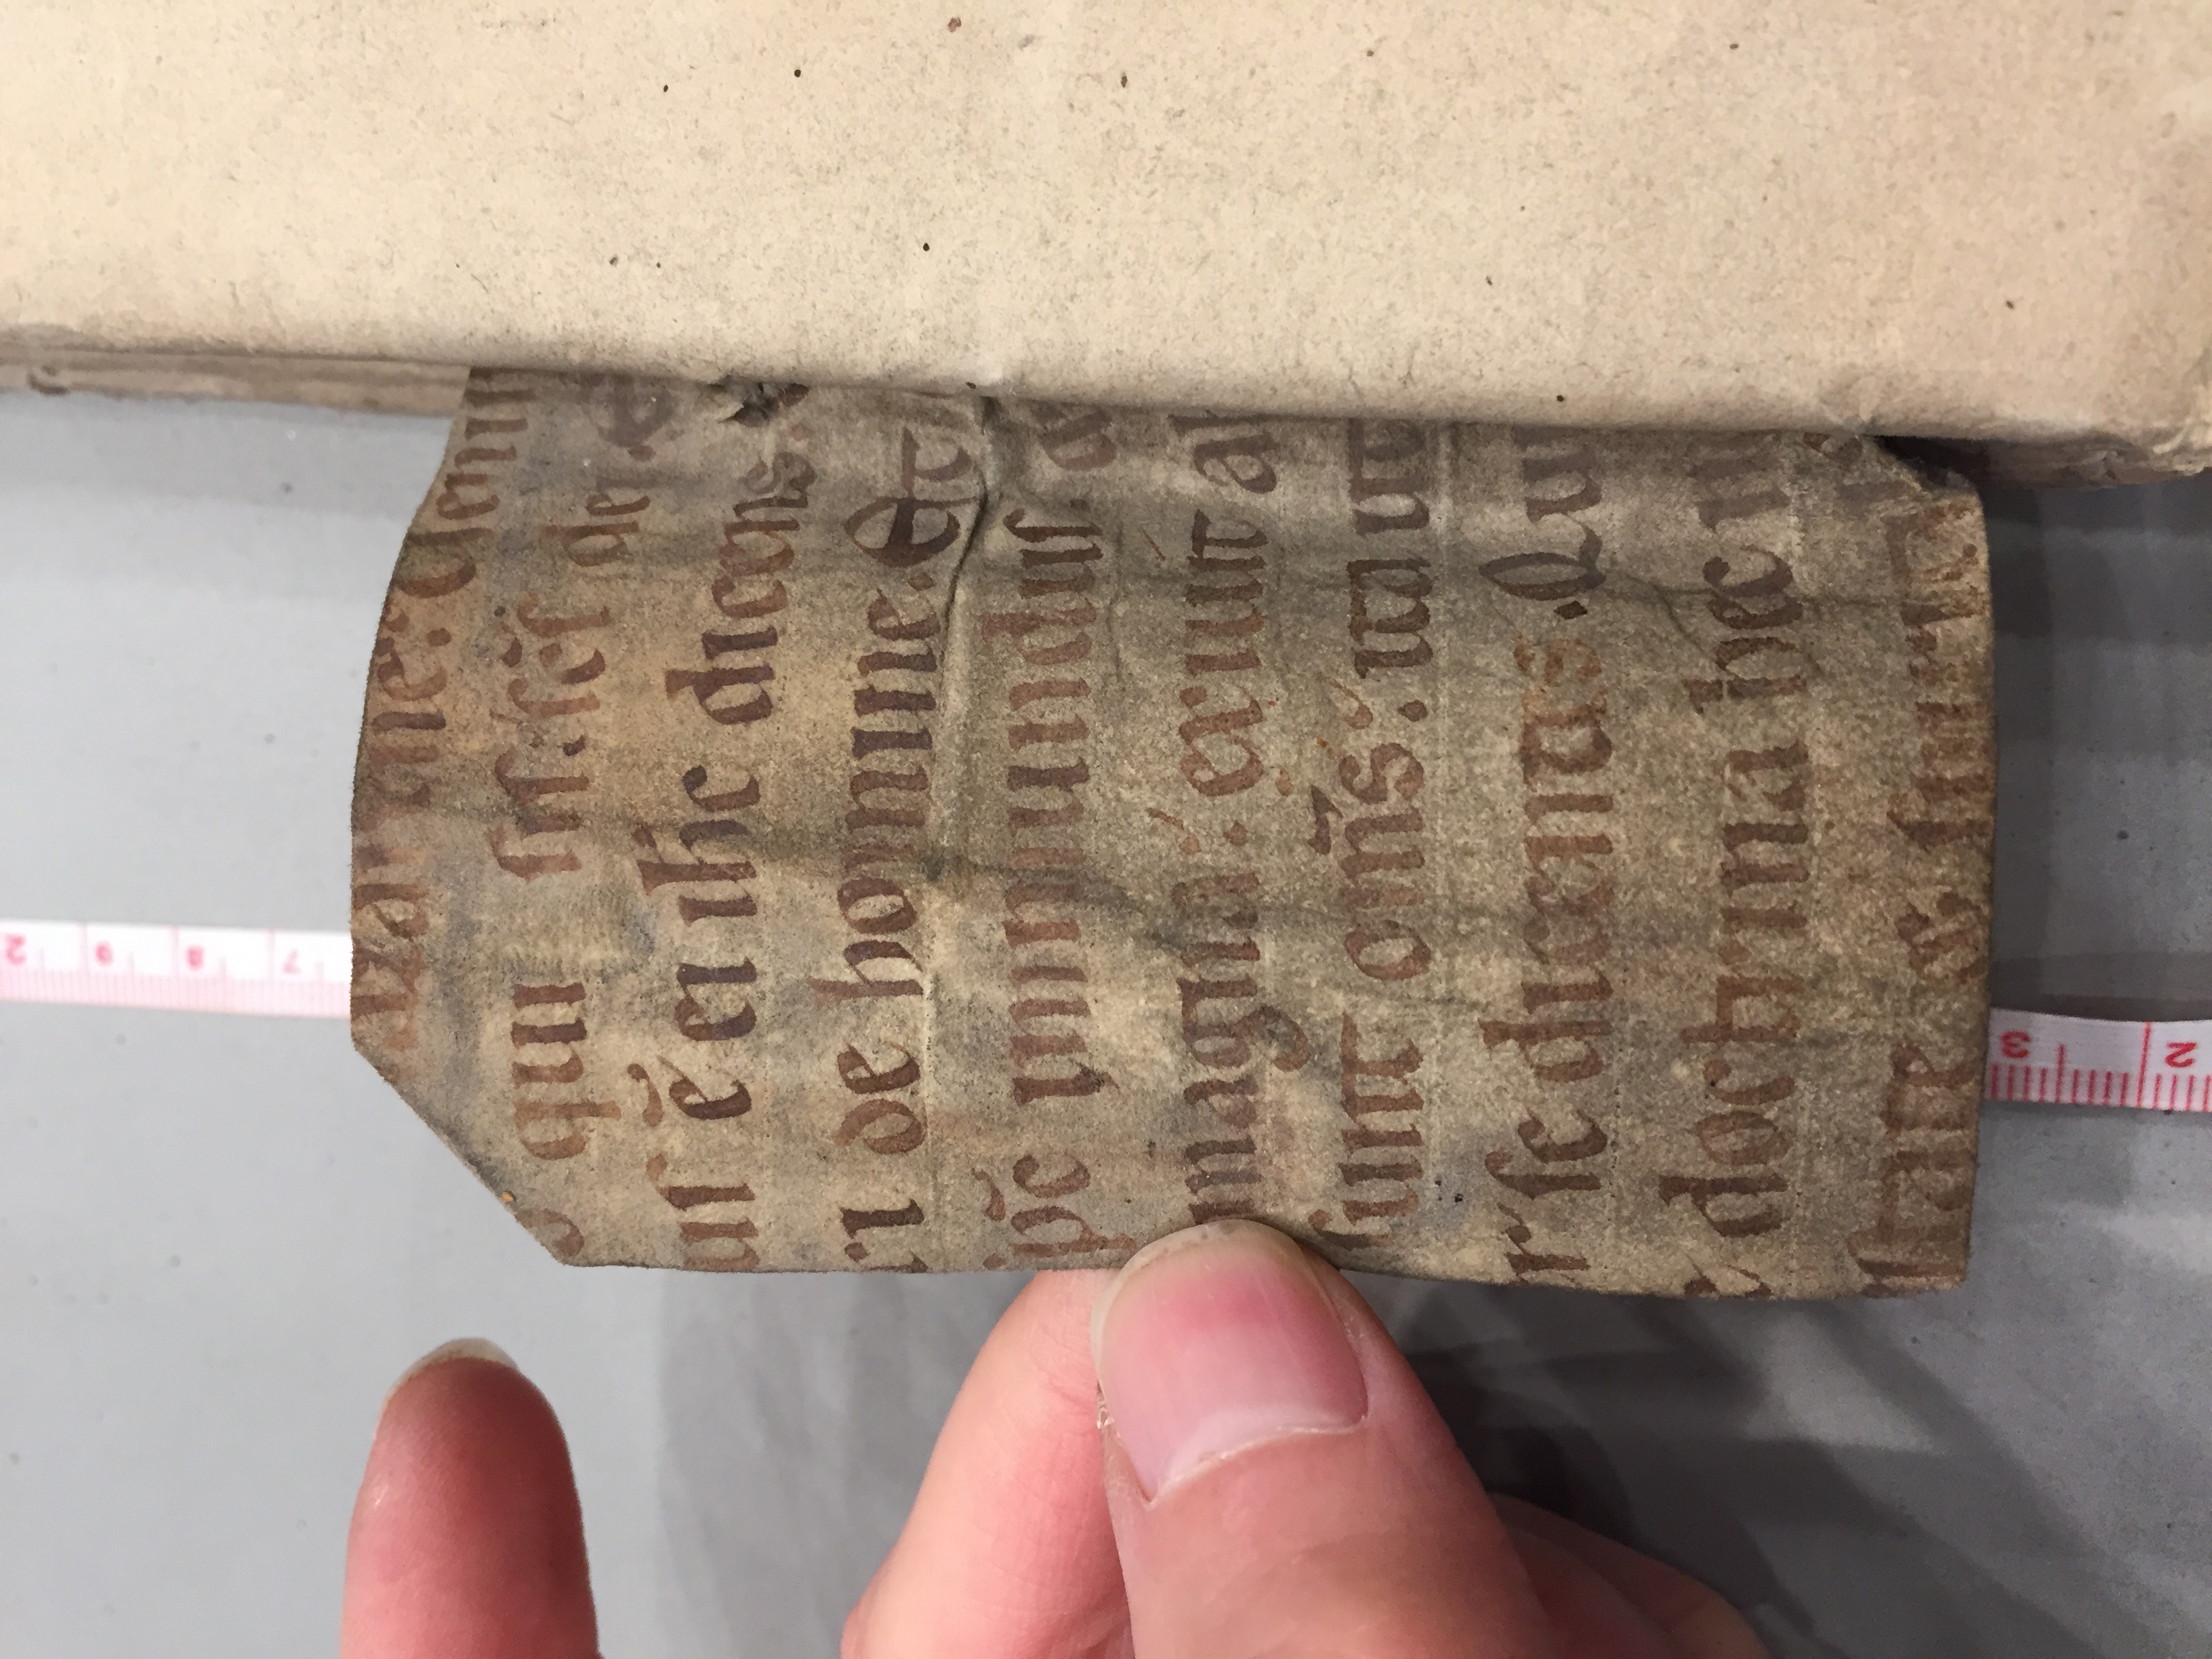 azarene: Venisti
o qui sis: sc̃s dei
us ẽ ei ih̄c dicens.
ri de homine. Et
sp̃c inmundus. &
magna: exiuit ab
sunt om̃s: ita ut
r se dicentes. Qui
e doctrina hec
state &
2
9
8
7
3
2